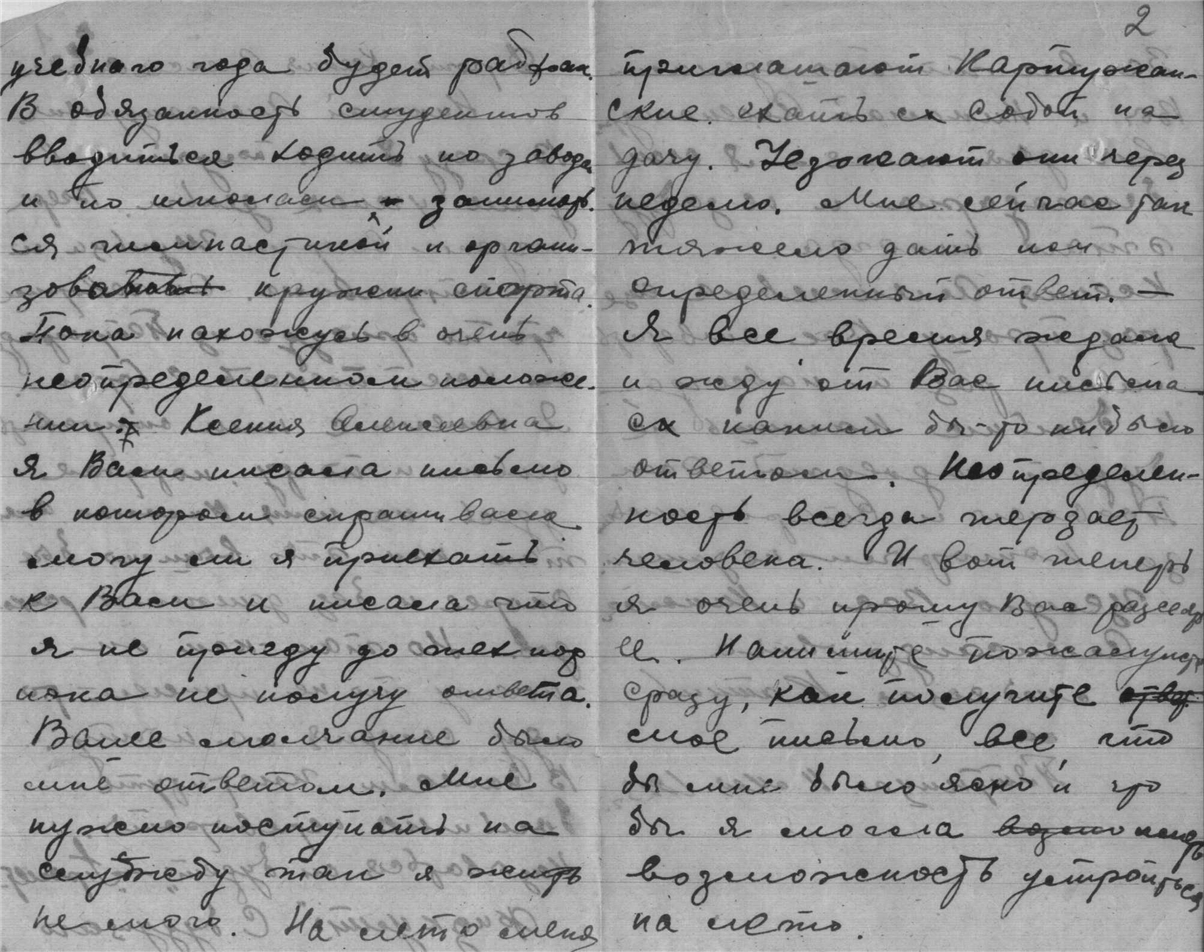 учебнаго года будет работ.
В обязанность студентов
вводиться ходить по завода
и по школам занимать.
ся гимнастикой и органи-
зовать кружки спорта.
Пока нахожусь в очень
неопределенном положе-
нии. Ксения Алексеевна
я Вам писала письмо
в котором спрашивала
могу ли я приехать
к Вам и писала что
я не приеду до тех пор
пока не получу ответа.
Ваше молчание было
мне ответом. Мне
нужно поступать на
службу так я жить
не могу. На лето меня
2
приглашают Картужан-
ские ехать с собой на
дачу. Уезжают они через
неделю. Мне сейчас так
тяжело дать им
определенный ответ. —
Я все время ждала
и жду от Вас письма
с каким бы-то нибыло
ответом. Неопределен-
ность всегда терзает
человека. И вот теперь
я очень прошу Вас
ее. Напишите пожалуйста
сразу, как получите
мое письмо, все что
бы мне было ясно и что
бы я могла иметь
возможность устроиться
на лето.